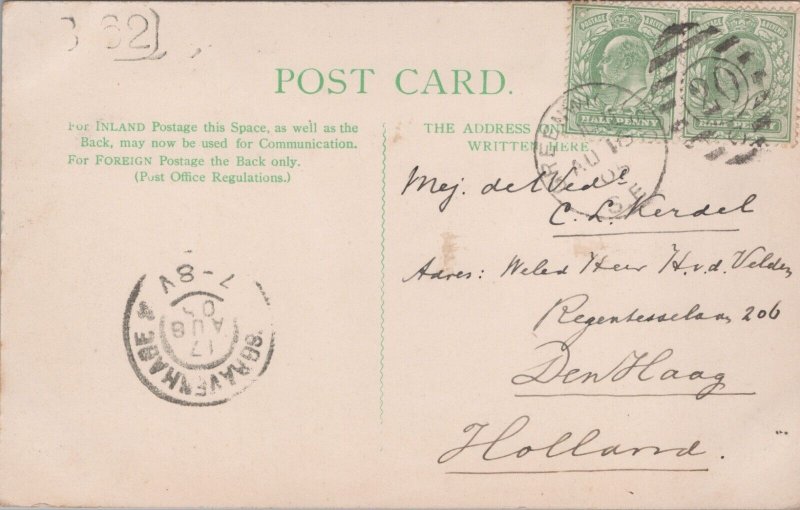 362
POST CARD.
For INLAND Postage this Space, as well as the
Back, may now be used for Communication.
For FOREIGN Postage the Back only.
(Post Office Regulations.)
THE ADDRESS ON
WRITTEN HERE
POSTAGE REVENUE
HALF PENNY
POSTAGE REVENUE
HALF PENNY
AU 16
05
S.E.
20
Mej. de
C. L. Kerdel
Adres: Weled Heer H. v. d. Velden
Regentesselaan 206
Den Haag
Holland.
'SGRAVENHAGE
17
AUG
05
7-8V